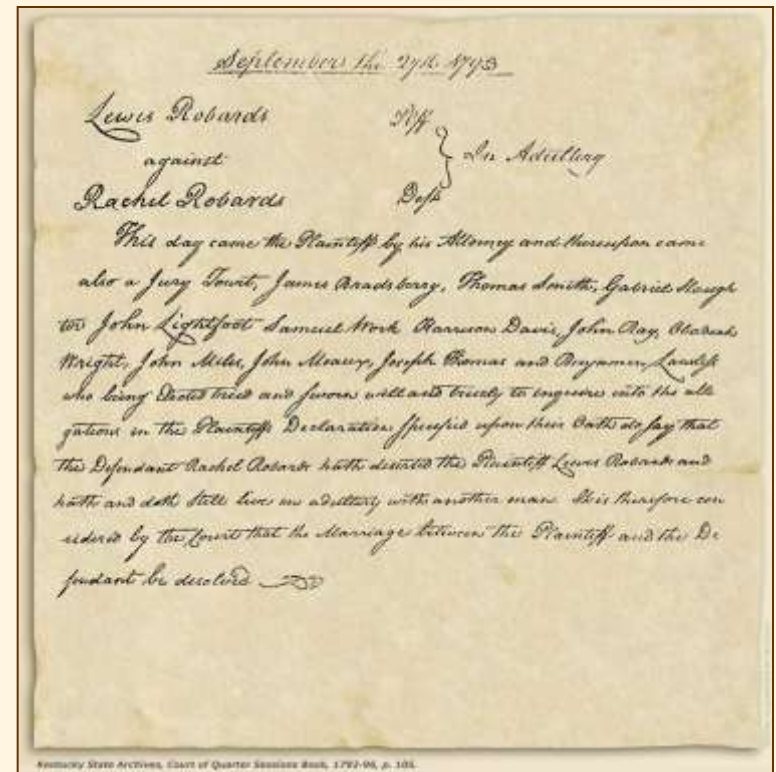 September the 27th 1793
Lewis Robards Plff
against } In Adultery
Rachel Robards Deft
This day came the Plaintiff by his Attorney and thereupon came
also a Jury Towit, James Bradsberry, Thomas Smith, Gabriel Slaugh
ter John Lightfoot Samuel Work Harrison Davis, John Ray, Obadiah
Wright, John Miles, John Meaux, Joseph Thomas and Benjamin Lawless
who being Elected tried and sworn well and truely to inquire into the alle
gations in the Plaintiffs Declaration specified upon their Oath do say that
the Defendant Rachel Robards hath deserted the Plaintiff Lewis Robards and
hath and doth Still live in adultery with another man It is therefore con
sidered by the Court that the Marriage between the Plaintiff and the De
fendant be desolved
Kentucky State Archives, Court of Quarter Sessions Book, 1792-96, p. 105.